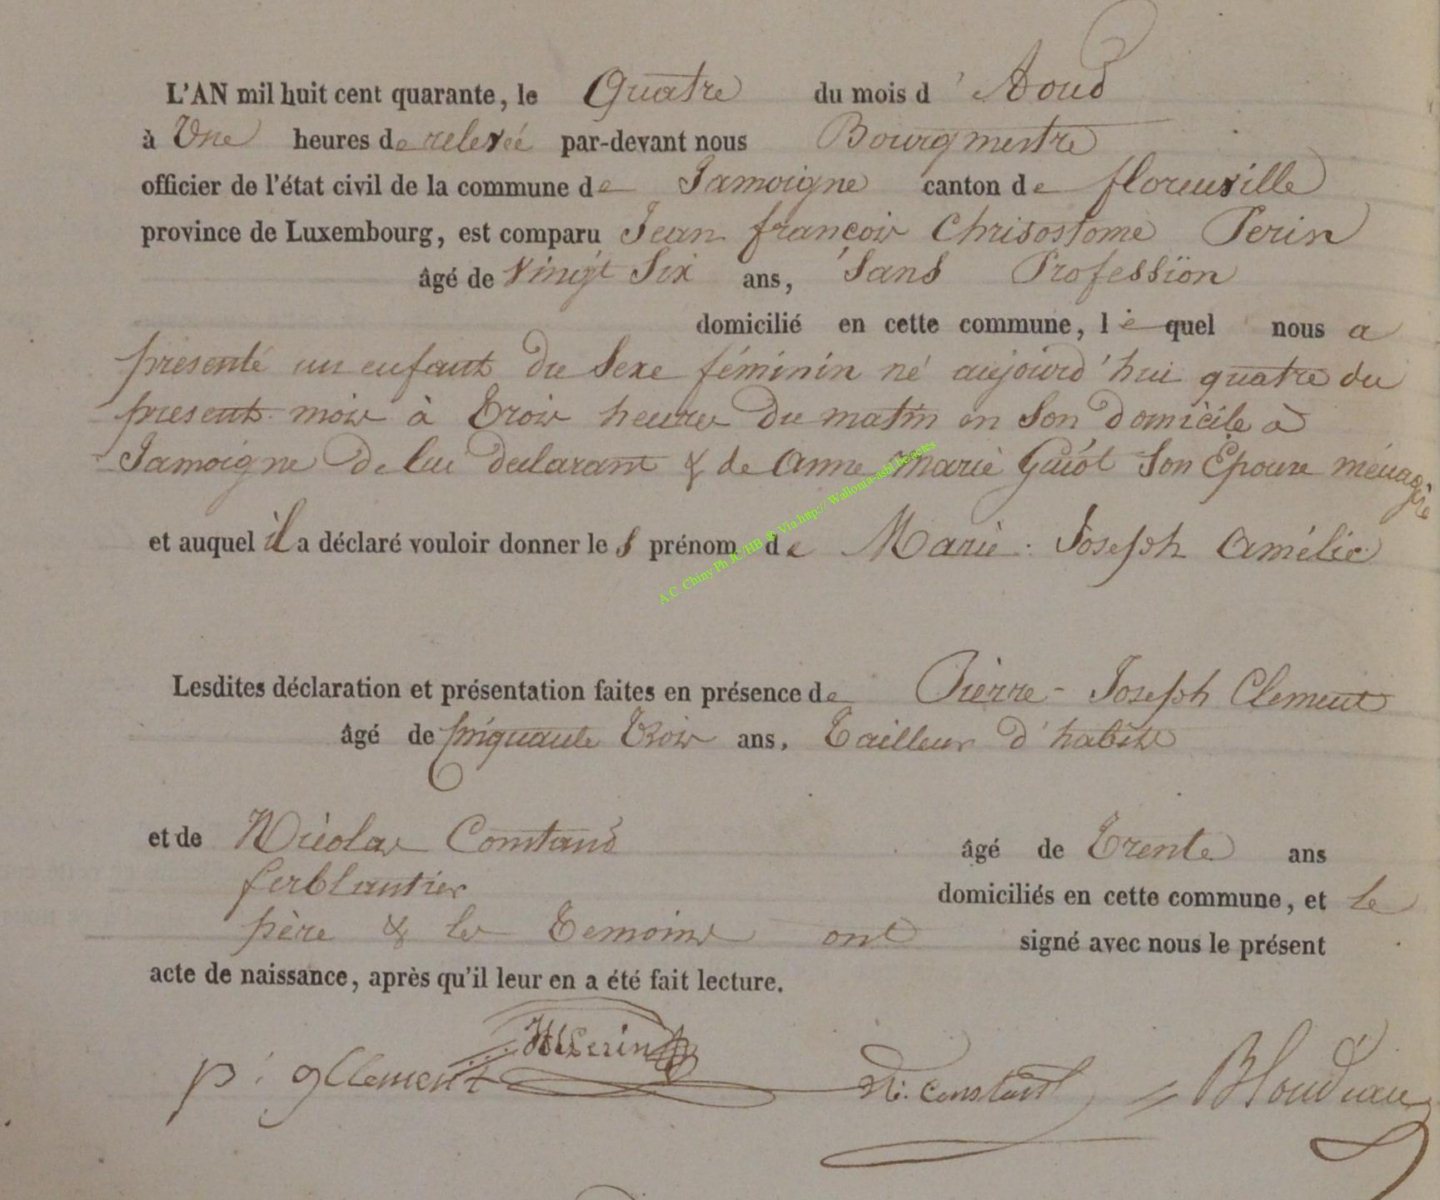 L'AN mil huit cent quarante, le Quatre du mois d'Aoud
à Une heures de relevée par-devant nous Bourgmestre
officier de l'état civil de la commune de Jamoigne canton de florenville
province de Luxembourg, est comparu Jean françois Chrisostome Perin
âgé de Vingt Six ans, Sans Profession
domicilié en cette commune, lequel nous a
présenté un enfant du Sexe féminin né aujourd'hui quatre du
présent mois à Trois heures Du matin en Son Domicile à
Jamoigne De lui déclarant & de Anne Marie Guiot Son Epouse ménagère
et auquel il a déclaré vouloir donner les prénom de Marie Joseph Amélie
Lesdites déclaration et présentation faites en présence de Pierre-Joseph Clement
âgé de cinquante Trois ans, Tailleur d'habits
et de Nicolas Constand âgé de Trente ans
ferblantier domiciliés en cette commune, et le
père & les Temoins ont signé avec nous le présent
acte de naissance, après qu'il leur en a été fait lecture.
p. j Clement Perin N. Constant
A.C. Chiny Ph JC/HB & Via http://Wallonia-asbl.be/actes